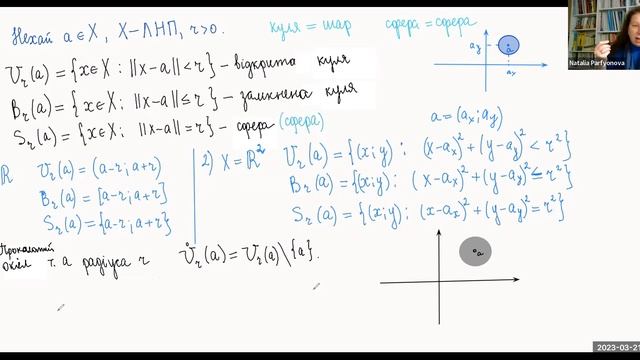 Нехай a∈X, X–ЛНП, r>0.
куля = шар сфера = сфера
U_r(a) = {x∈X : ||x-a||<r} – відкрита куля
B_r(a) = {x∈X; ||x-a||≤r} – замкнена куля
S_r(a) = {x∈X; ||x-a||=r} – сфера (сфера)
a_y a
a_x
a = (a_x; a_y)
ℝ U_r(a) = (a-r; a+r)
B_r(a) = [a-r; a+r]
S_r(a) = {a-r; a+r}
2) X = ℝ² U_r(a) = {(x;y) : (x-a_x)²+(y-a_y)² < r²}
B_r(a) = {(x;y) : (x-a_x)²+(y-a_y)² ≤ r²}
S_r(a) = {(x;y) : (x-a_x)²+(y-a_y)² = r²}
Проколотий
окіл т. a радіуса r Ů_r(a) = U_r(a)\{a}.
a
Natalia Parfyonova
2023-03-21